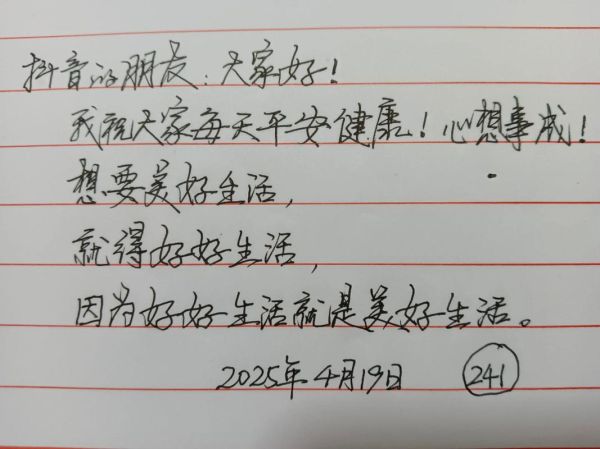 抖音的朋友：大家好！
我祝大家每天平安健康！心想事成！
想要美好生活，
就得好好生活，
因为好好生活就是美好生活。
2025年4月19日 241